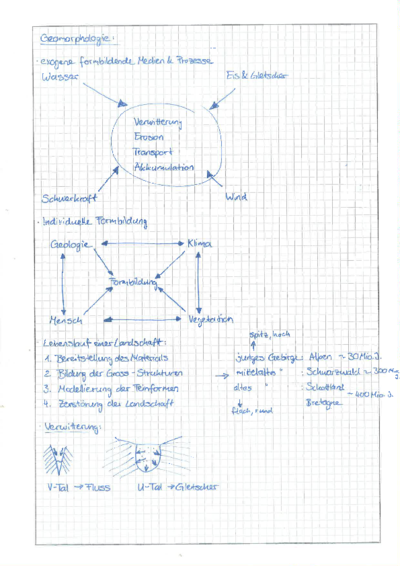 Geomorphologie:
· exogene formbildende Medien & Prozesse
Wasser
Eis & Gletscher
Verwitterung
Erosion
Transport
Akkumulation
Schwerkraft
Wind
· Individuelle Formbildung
Geologie
Klima
Formbildung
Mensch
Vegetation
Lebenslauf einer Landschaft:
1. Bereitstellung des Materials
2. Bildung der Gross-Strukturen
3. Modellierung der Feinformen
4. Zerstörung der Landschaft
spitz, hoch
junges Gebirge: Alpen ~ 30 Mio. J.
mittelaltes " : Schwarzwald ~ 300 Mio. J.
altes " : Schottland
Bretagne ~ 400 Mio. J.
flach, rund
· Verwitterung:
V-Tal → Fluss
U-Tal → Gletscher